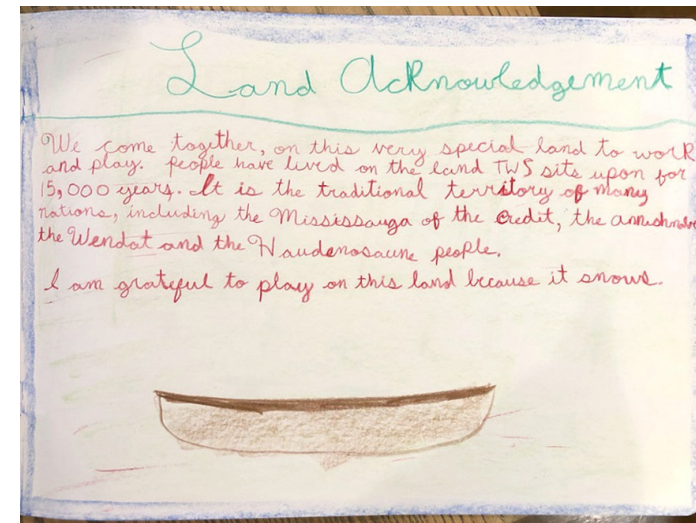 Land Acknowledgement
We come together, on this very special land to work
and play. people have lived on the land TWS sits upon for
15,000 years. It is the traditional territory of many
nations, including the Mississauga of the credit, the
the Wendat and the Haudenosaune people.
I am grateful to play on this land because it snows.